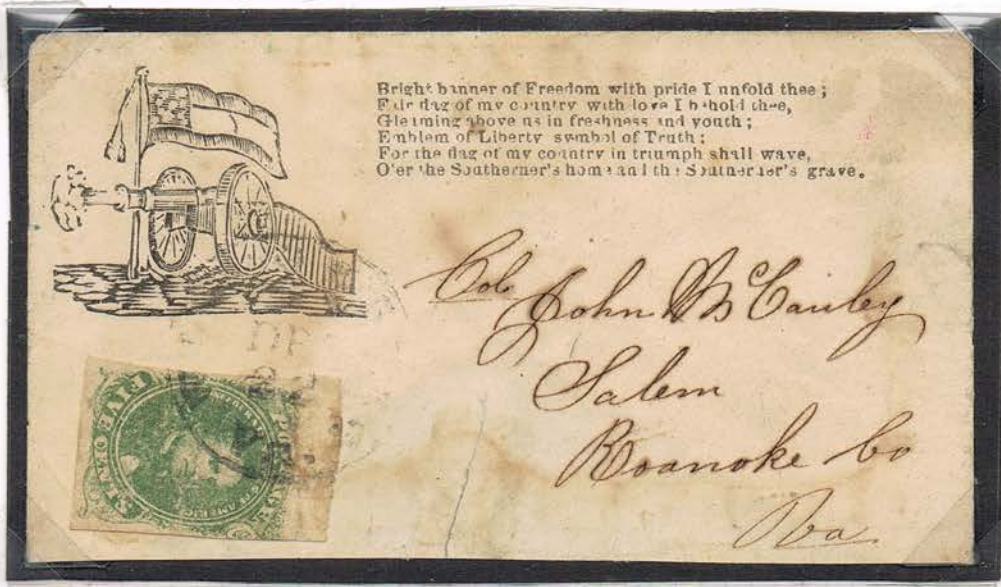 Bright banner of Freedom with pride I unfold thee ;
Fair flag of my country with love I behold thee,
Gleaming above us in freshness and youth ;
Emblem of Liberty symbol of Truth ;
For the flag of my country in triumph shall wave,
O'er the Southerner's home and the Southerner's grave.
Col John McCauley
Salem
Roanoke Co
Va
FIVE
AMERICA